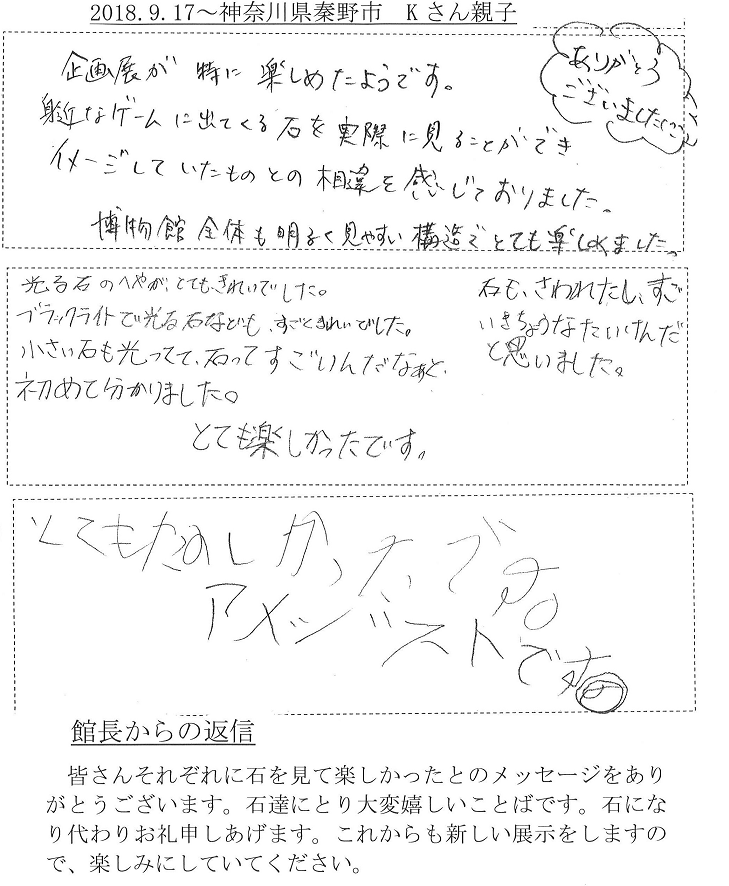 2018.9.17～神奈川県秦野市　Kさん親子
企画展が 特に 楽しめたようです。
ありがとう
ございました(^^)
身近なゲームに出てくる石を実際に見ることができ
イメージしていたものとの相違を感じておりました。
博物館全体も明るく見やすい構造でとても楽しめました。
光る石のへやが、とてもきれいでした。
ブラックライトで光る石なども、すごくきれいでした。
小さい石も光ってて、石ってすごいんだなぁと、
初めて分かりました。
とても楽しかったです。
石も、さわれたし、すご
いきちょうなたいけんだ
と思いました。
とてもたのしかったです。
アメジストです
館長からの返信
皆さんそれぞれに石を見て楽しかったとのメッセージをあり
がとうございます。石達にとり大変嬉しいことばです。石にな
り代わりお礼申しあげます。これからも新しい展示をしますの
で、楽しみにしていてください。